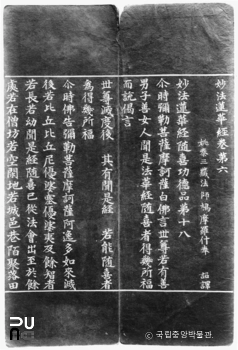 妙法蓮華經卷第六
姚秦三藏法師鳩摩羅什奉 詔譯
妙法蓮華經隨喜功德品第十八
尒時彌勒菩薩摩訶薩白佛言世尊若有善
男子善女人聞是法華經隨喜者得幾所福
而說偈言
世尊滅度後 其有聞是經 若能隨喜者
爲得幾所福
尒時佛告彌勒菩薩摩訶薩阿逸多如來滅
後若比丘比丘尼優婆塞優婆夷及餘智者
若長若幼聞是經隨喜已從法會出至於餘
處若在僧坊若空閑地若城邑巷陌聚落田
© 국립중앙박물관